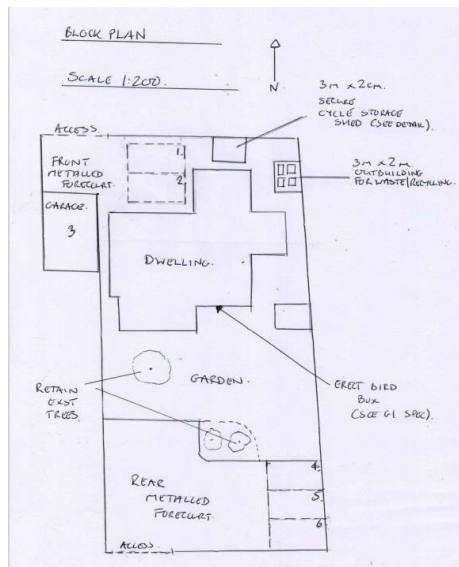 BLOCK PLAN
SCALE 1:200.
N
3m x 2cm.
SECURE
CYCLE STORAGE
SHED (SEE DETAIL).
ACCESS.
FRONT
METALLED
FORECOURT.
1.
2
3m x 2m.
OUTBUILDING
FOR WASTE/RECYCLING.
GARAGE.
3
DWELLING.
RETAIN
EXST
TREES.
GARDEN.
ERECT BIRD
BOX
(SEE G1 SPEC).
REAR
METALLED
FORECOURT.
4.
5.
6
ACCESS.